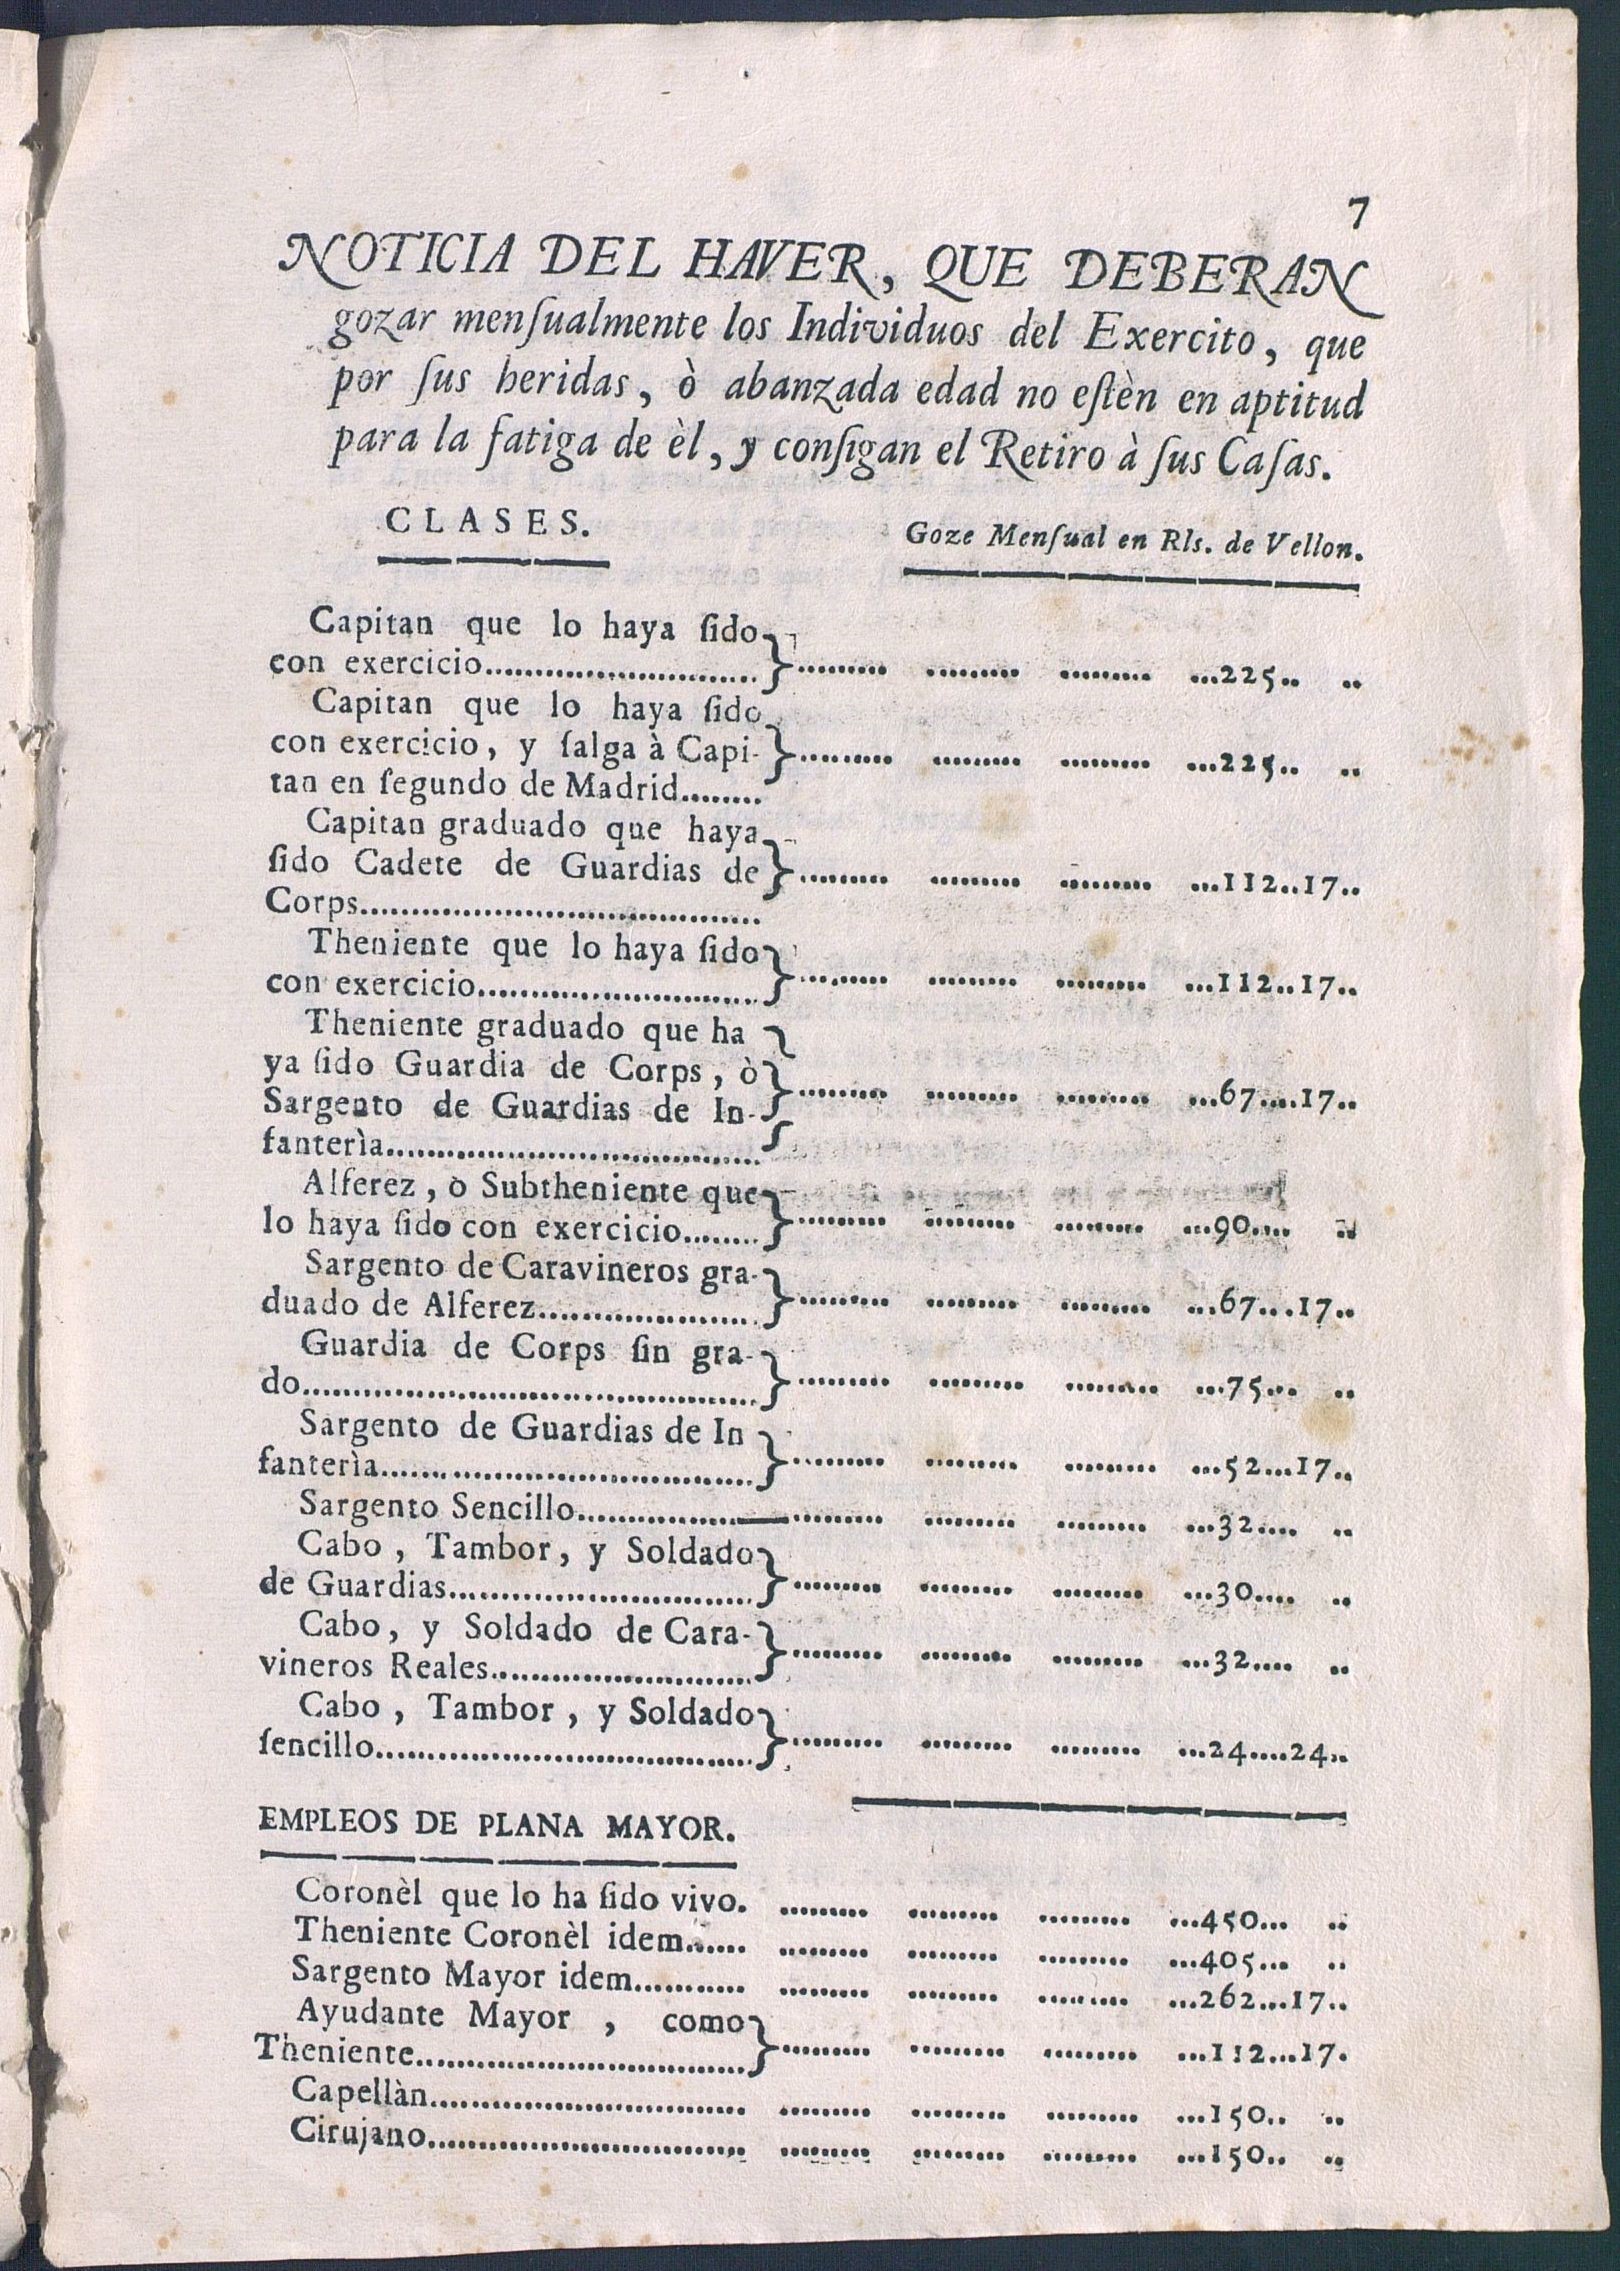 7
NOTICIA DEL HAVER, QUE DEBERAN
gozar menſualmente los Individuos del Exercito, que
por ſus heridas, ò abanzada edad no eſtèn en aptitud
para la fatiga de èl, y conſigan el Retiro à ſus Caſas.
CLASES. Goze Menſual en Rls. de Vellon.
Capitan que lo haya ſido
con exercicio............................} ......... ......... ......... ...225.. ..
Capitan que lo haya ſido
con exercicio, y ſalga à Capi-} ......... ......... ......... ...225.. ..
tan en ſegundo de Madrid........
Capitan graduado que haya
ſido Cadete de Guardias de} ......... ......... ......... ...112..17..
Corps.......................................
Theniente que lo haya ſido
con exercicio............................} ......... ......... ......... ...112..17..
Theniente graduado que ha
ya ſido Guardia de Corps, ò
Sargento de Guardias de In-} ......... ......... ......... ...67.....17..
fanterìa.....................................
Alferez, ò Subtheniente que
lo haya ſido con exercicio........} ......... ......... ......... ...90..... ..
Sargento de Caravineros gra-
duado de Alferez.....................} ......... ......... ......... ...67....17..
Guardia de Corps ſin gra-
do.............................................} ......... ......... ......... ...75... ..
Sargento de Guardias de In
fanterìa.....................................} ......... ......... ......... ...52...17..
Sargento Sencillo................—......... ......... ......... ...32..... ..
Cabo, Tambor, y Soldado
de Guardias..............................} ......... ......... ......... ...30.... ..
Cabo, y Soldado de Cara-
vineros Reales..........................} ......... ......... ......... ...32.... ..
Cabo, Tambor, y Soldado
ſencillo.....................................} ......... ......... ......... ...24.....24..
EMPLEOS DE PLANA MAYOR.
Coronèl que lo ha ſido vivo. ......... ......... ......... ...450... ..
Theniente Coronèl idem...... ......... ......... ......... ...405... ..
Sargento Mayor idem........... ......... ......... ......... ...262...17..
Ayudante Mayor, como
Theniente.................................} ......... ......... ......... ...112...17.
Capellàn............................... ......... ......... ......... ...150.. ..
Cirujano............................... ......... ......... ......... ...150.. ..